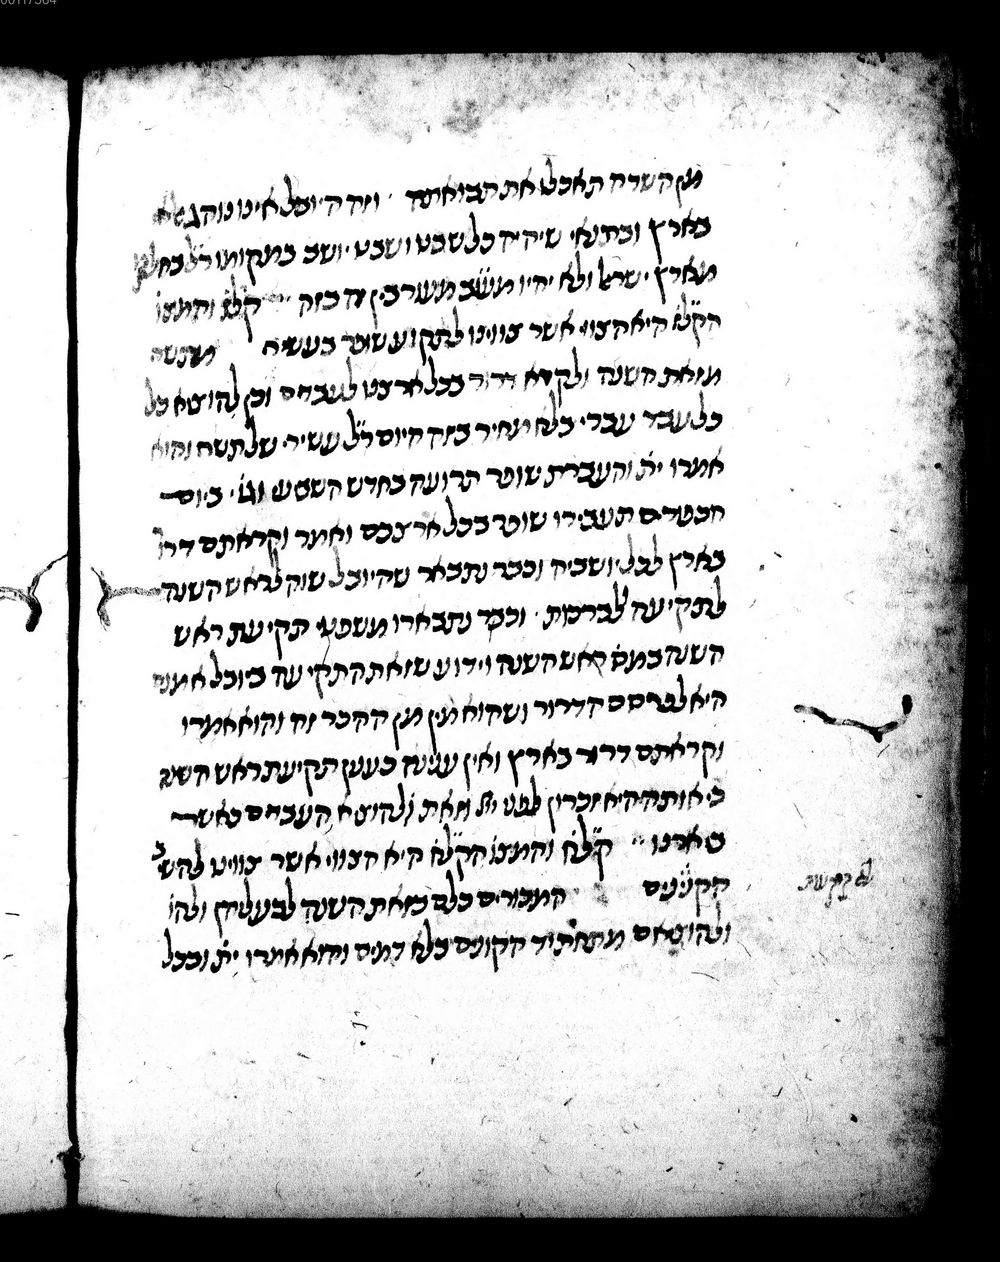 מן השדה תאכלו את תבואתה וזה היובל אינו נוהג אלא
בארץ ובתנאי שיהיה כל שבט ושבט יושב במקומו ר״ל בחלקו
מארץ ישראל ולא יהיו מעורבין זה בזה קל״ז והמצו׳
הקל״ז היא הצווי אשר צווינו לתקוע שופר בעשירי
מזאת השנה ולקרא דרור בכל ארצנו לעבדים וכן להוציא כל
כל עבד עברי בלא מחיר בזה היום ר״ל עשירי של תשרי והוא
אמרו ית׳ והעברת שופר תרועה בחדש השביעי וגו׳ ביום
הכפורים תעבירו שופר בכל ארצכם ואמר וקראתם דרור
בארץ לכל יושביה וכבר נתבאר שהיובל שוה לראש השנה
לתקיעה ולברכות וכבר נתבארו משפטי תקיעת ראש
השנה במס׳ ראש השנה וידוע שזאת התקיעה ביובל אמנם
היא לפרסם הדרור ושהוא מין מן ההכר זה והוא אמרו
וקראתם דרור בארץ ואין ענינה כענין תקיעת ראש השנה
כי אותה היא זכרון לפני ית׳ וזאת להוציא העבדים כאשר
בארנו קל״ח והמצו׳ הקל״ח היא הצווי אשר צווינו להשיב
הקנינים המכורים כלם בזאת השנה לבעליהן ולהו׳
ולהוציאם מתחת יד הקונים בלא דמים והוא אמרו ית׳ ובכל